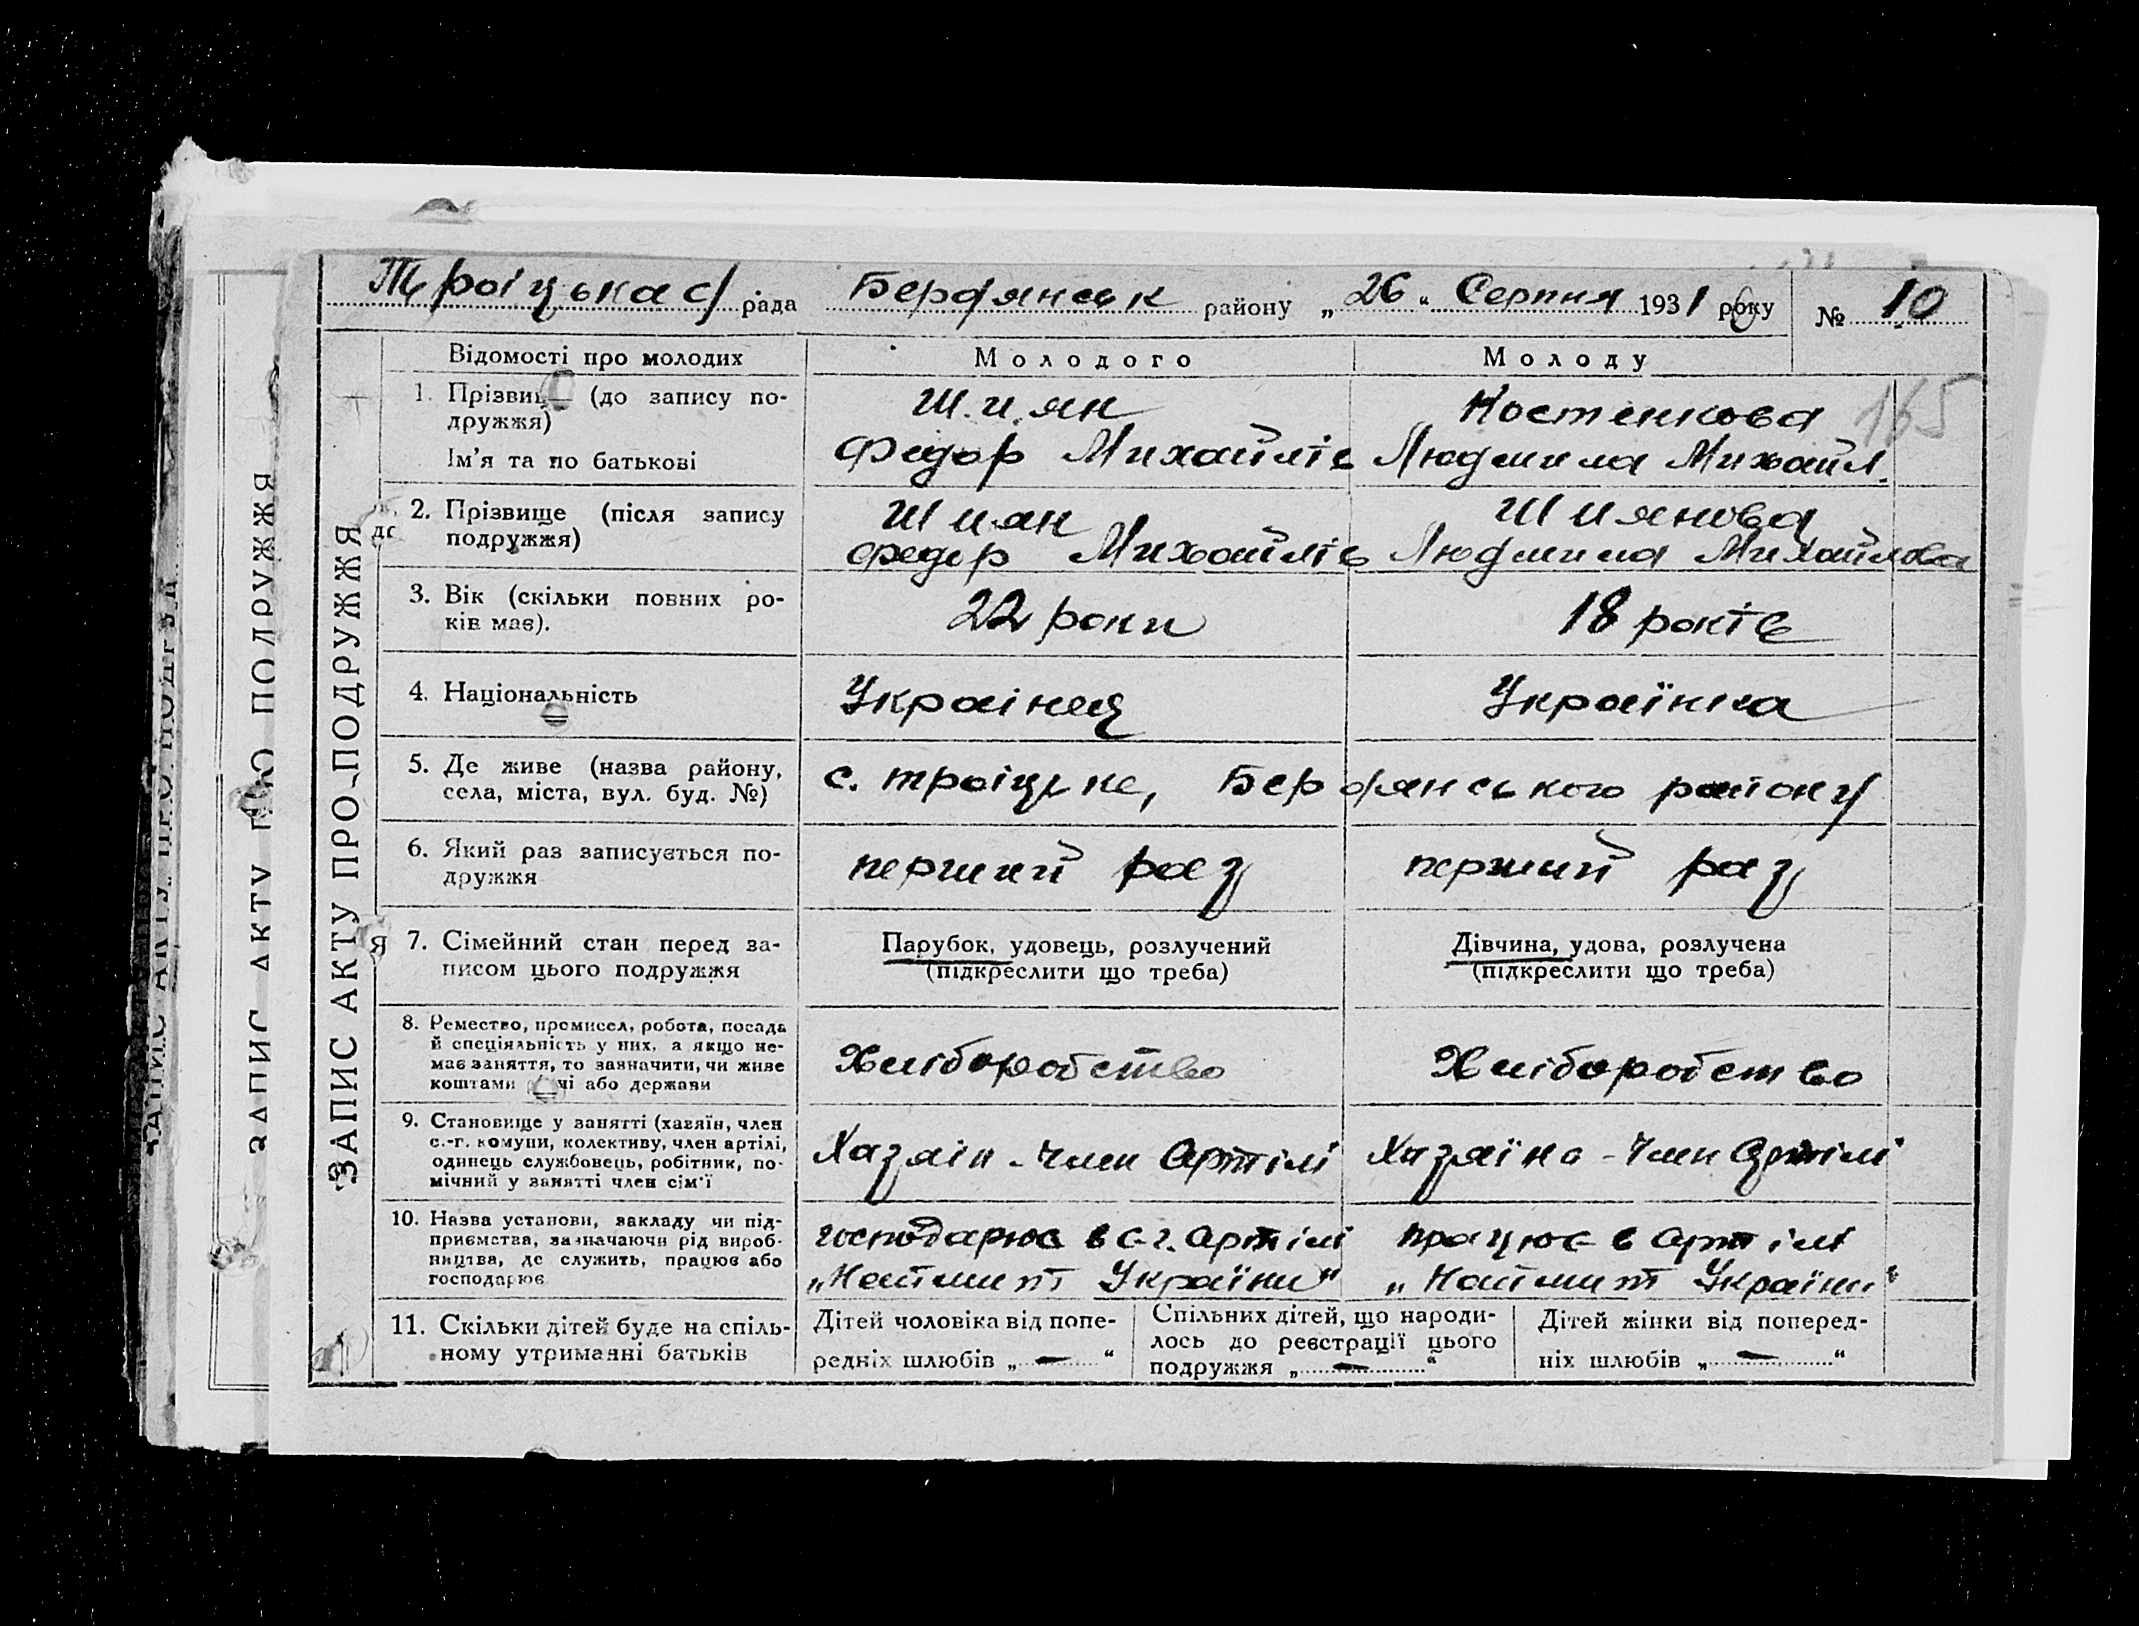 Троіцька с/рада Бердянськ району „26“ Серпня 1931 року № 10
Відомості про молодих Молодого Молоду
1. (до запису по-
дружжя) Шиян Костенкова 165
Ім'я та по батькові Федор Михайлів Людмила Михайл.
2. Прізвище (після запису
подружжя) Шиян Шиянова
Федор Михайлів Людмила Михайлова
3. Вік (скільки повних ро-
ків має). 22 роки 18 років
4. Національність Украінец Українка
5. Де живе (назва району,
села, міста, вул. буд. №) с. Троіцьке, Бердянського району
6. Який раз записується по-
дружжя перший раз перший раз
7. Сімейний стан перед за-
писом цього подружжя
Парубок, удовець, розлучений
(підкреслити що треба)
Дівчина, удова, розлучена
(підкреслити що треба)
8. Ремество, промисел, робота, посада
й спеціяльність у них, а якщо не-
має заняття, то зазначити, чи живе
коштами або держави
Хліборобство Хліборобство
9. Становище у занятті (хазяїн, член
с.-г. комуни, колективу, член артілі,
одинець службовець, робітник, по-
мічний у занятті член сім'ї
Хазяін - член Артілі Хазяїна - Член Артілі
10. Назва установи, закладу чи під-
приємства, зазначаючи рід вироб-
ництва, де служить, працює або
господарює
господарює в с.г. Артілі
„Наймит України“
працює в Артілі
„Наймит України“
11. Скільки дітей буде на спіль-
ному утриманні батьків
Дітей чоловіка від попе-
редніх шлюбів „ — “
Спільних дітей, що народи-
лось до реєстрації цього
подружжя „ — “
Дітей жінки від поперед-
ніх шлюбів „ — “
ЗАПИС АКТУ ПРО ПОДРУЖЖЯ
ЗАПИС АКТУ ПОДРУЖЖЯ